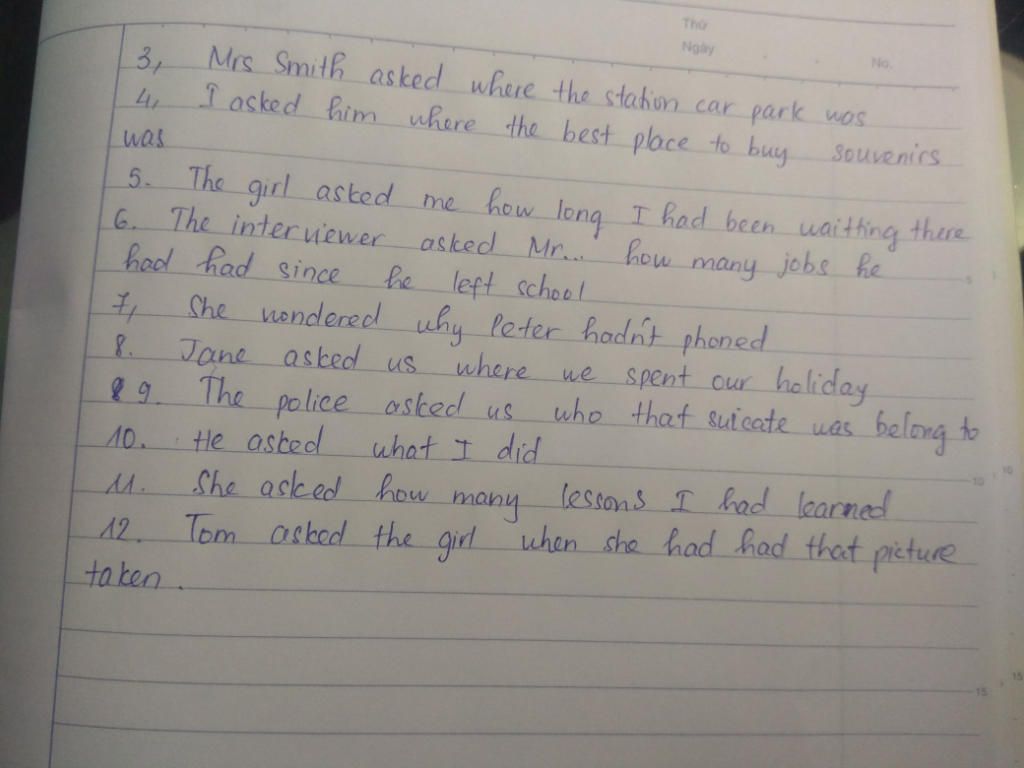 Thứ
Ngày
No.
3, Mrs Smith asked where the station car park was
4, I asked him where the best place to buy souvenirs
was
5. The girl asked me how long I had been waitting there
6. The interviewer asked Mr... how many jobs he
had had since he left school
7, She wondered why Peter hadn't phoned
8. Jane asked us where we spent our holiday
9. The police asked us who that suicate was belong to
10. He asked what I did
11. She asked how many lessons I had learned
12. Tom asked the girl when she had had that picture
taken.
5
10
10
15
15